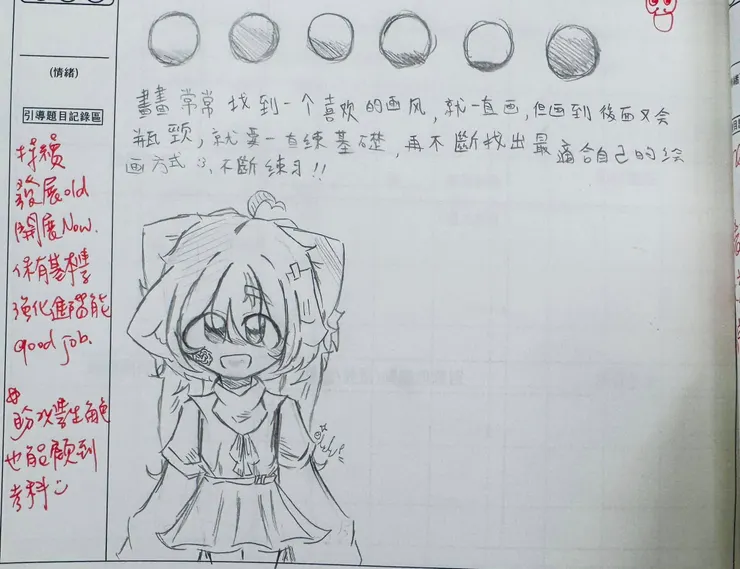 (情緒)
引導題目記錄區
畫畫常常找到一个喜欢的画风,就一直画,但画到後面又会
瓶頸,就要一直練基礎,再不斷找出最適合自己的绘
画方式:3,不斷練习!!
持續
發展old
開展Now.
保有基礎
強化進階能
good job.
也能顧到
考科